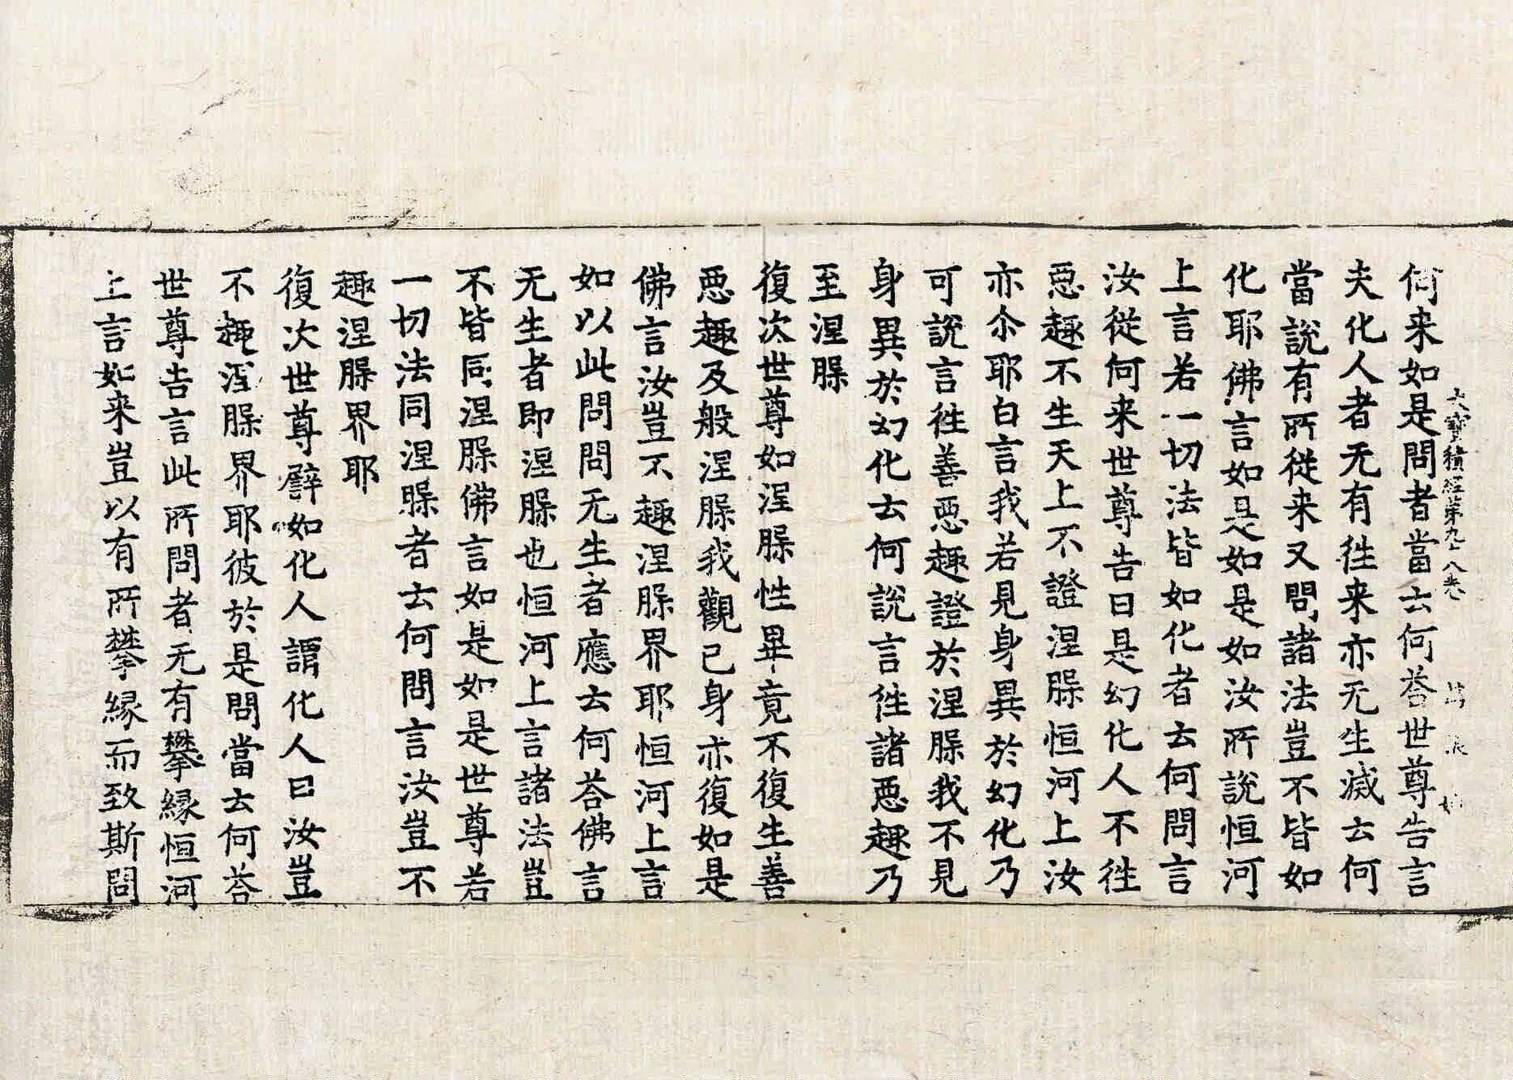 大寶積經第九十八卷
何来如是問者當去何荅世尊告言
夫化人者无有徃来亦无生滅去何
當說有所從来又問諸法豈不皆如
化耶佛言如是如是如汝所說恒河
上言若一切法皆如化者去何問言
汝從何来世尊告曰是幻化人不徃
惡趣不生天上不證涅腺恒河上汝
亦尒耶白言我若見身異於幻化乃
可說言徃善惡趣證於涅腺我不見
身異於幻化去何說言徃諸惡趣乃
至涅腺
復次世尊如涅腺性畢竟不復生善
惡趣及般涅腺我觀己身亦復如是
佛言汝豈不趣涅腺界耶恒河上言
如以此問問无生者應去何荅佛言
无生者即涅腺也恒河上言諸法豈
不皆同涅腺佛言如是如是世尊若
一切法同涅腺者去何問言汝豈不
趣涅腺界耶
復次世尊譬如化人謂化人曰汝豈
不趣涅腺界耶彼於是問當去何荅
世尊告言此所問者无有攀緣恒河
上言如来豈以有所攀緣而致斯問